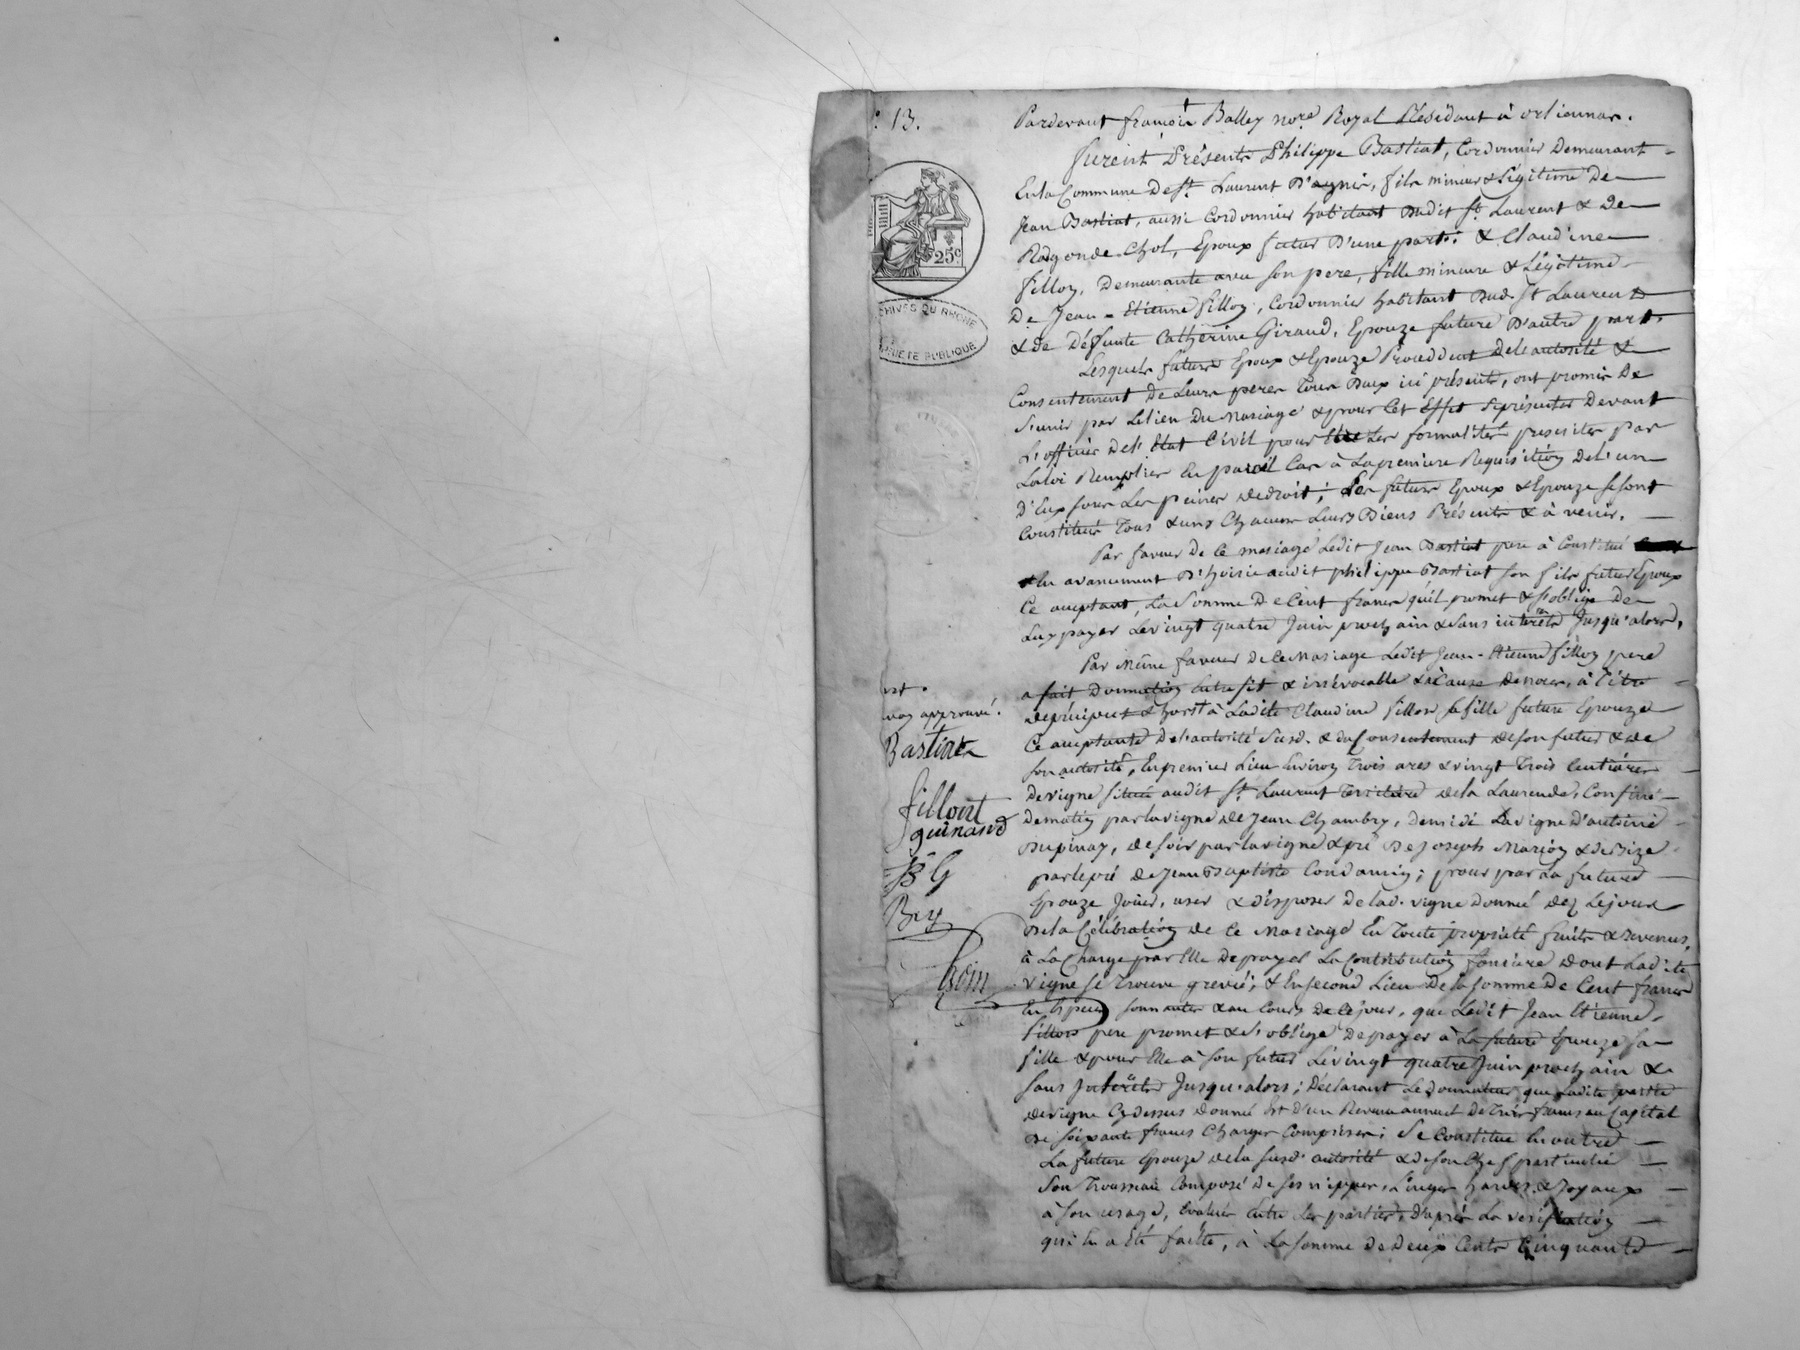 13.
25c
CHIVES DU RHÔNE
PRIÉTÉ PUBLIQUE
Pardevant françois Balley nore Royal Résidant à orliennas.
furent Présents Philippe Bastiat, Cordonnier Demeurant
En la Commune de St. Laurent D'agnis, fils mineur & Légitime De
Jean Bastiat, aussi Cordonnier habitant Dudit St. Laurent & De
Radgonde Chol, Epoux futur D'une part; & Claudine
fillon, Demeurante avec son pere, fille mineure & Légitime
De Jean-Etienne fillon, Cordonnier habitant Dud. St Laurent
& de Défunte Catherine Giraud, Epouze future D'autre part.
Lesquels futurs Epoux & Epouze Procédent de l'autorité &
Consentement de Leurs peres Tous Deux ici présents, ont promis De
S'unir par Le lien Du Mariage & pour Cet Effet se présenter Devant
L'officier de l'Etat Civil pour Les formalités prescrites par
La loi Remplies En pareil Cas à La premiere Requisition de l'un
D'Eux sous Les peines de droit; Les futurs Epoux & Epouze se sont
Constitués Tous & uns Chacuns Leurs Biens Présents & à venir.
Par faveur De Ce mariage Ledit Jean Bastiat pere à Constitué
En avancement D'hoirie audit philippe Bastiat son fils futur Epoux
Ce acceptant, La Somme De Cent francs qu'il promet & s'oblige De
Luy payer Le vingt quatre Juin prochain & sans intérêts Jusqu'alors.
Par Même faveur de Ce Mariage Ledit Jean-Etienne fillon pere
a fait Donnation Entre vifs & irrévocable & à Cause De noces, à Titre
de préciput & hors à Ladite Claudine fillon sa fille future Epouze
Ce acceptante De l'autorité Susd. & du Consentement de son futur & de
son autorité, En premier Lieu Environ Trois ares & vingt Trois Centiares
de vigne située audit St. Laurent Territoire de la Laurende, Confiné
de matin par la vigne de Jean Chambry, de midi La vigne d'antoine
Dupinay, de soir par la vigne & pré De Joseph Marion & de Bize
par le pré de Jean Baptiste Condamin; pour par La future
Epouze Jouir, user & disposer de lad. vigne Donnée dez Le jour
de la Célébration de Ce Mariage En Toute propriété fruits & revenus,
à La Charge par Elle De payer La Contribution fonciere dont Ladite
vigne se Trouve grevée; & En second Lieu De la somme De Cent francs
En Espèces sonnantes & au Cours de Ce jour, que Ledit Jean Etienne
fillon pere promet & s'oblige De payer à La future Epouze sa
fille & pour Elle à son futur Le vingt quatre Juin prochain &
sans Intérêts Jusqu'alors; Déclarant Le donnateur que Ladite partie
de vigne Cy dessus donnée Est d'un Revenu annuel De Trois francs au Capital
de soixante francs Charges Comprises; Se Constitue En outre
La future Epouze de la susd. autorité & de son Chef particulier
Son Trousseau Composé De ses nippes, Linges hardes & Joyaux
à son usage, Evalués Entre Les parties, d'après La vérification
qui En a Eté faitte, à La somme De Deux Cents Cinquante
approuvé.
Bastiat
fillont
guinand
Bry